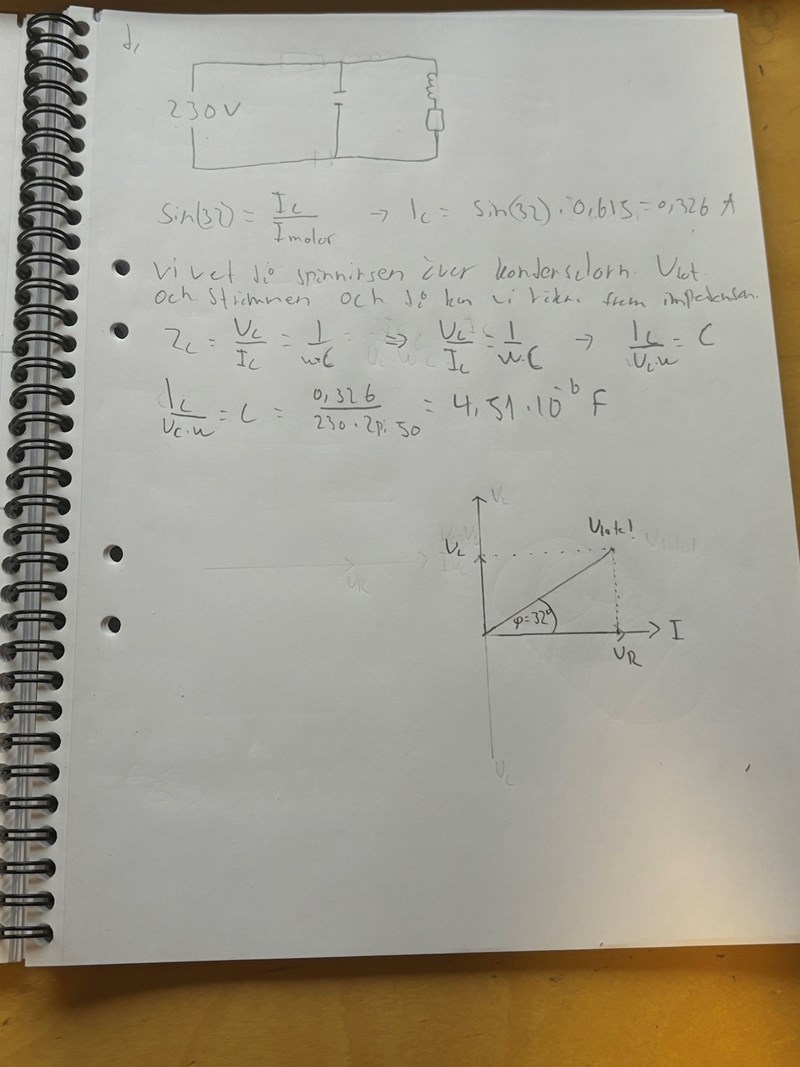 d,
230V
sin(32) = I_C / I_motor → I_C = sin(32) · 0,615 = 0,326 A
Vi vet då spänningen över kondensatorn. U_tot
och strömmen och då kan vi räkna fram impedansen.
Z_C = U_C / I_C = 1 / w·C ⇒ U_C / I_C = 1 / w·C → I_C / U_C·w = C
I_C / U_C·w = C = 0,326 / 230·2pi·50 = 4,51·10^-6 F
U_L
U_L
U_tot!
φ=32°
I
U_R
U_R
U_C